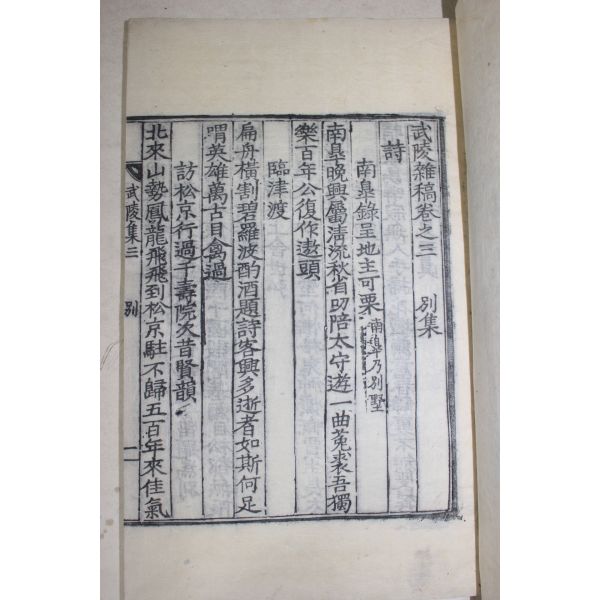 武陵雜稿卷之三 別集
詩
南皐錄呈地主可栗 南皐乃別墅
南皐晚興屬淸流秋省叨陪太守遊一曲菟裘吾獨
樂百年公復作遨頭
臨津渡
扁舟橫割碧羅波酌酒題詩客興多逝者如斯何足
喟英雄萬古目禽過
訪松京行過千壽院次昔賢韻
北來山勢鳳龍飛飛到松京駐不歸五百年來佳氣
武陵集三 別 一